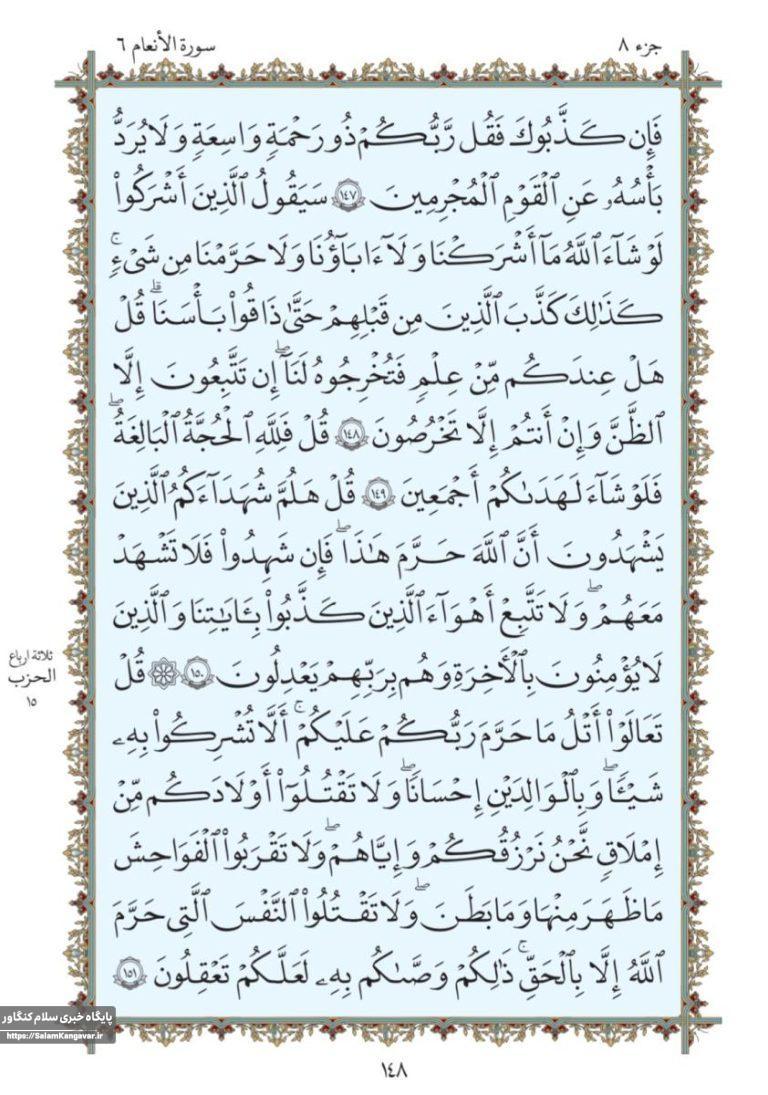 جزء ٨
سورة الأنعام ٦
فَإِن كَذَّبُوكَ فَقُل رَّبُّكُمْ ذُو رَحْمَةٍ وَاسِعَةٍ وَلَا يُرَدُّ
بَأْسُهُۥ عَنِ ٱلْقَوْمِ ٱلْمُجْرِمِينَ ١٤٧ سَيَقُولُ ٱلَّذِينَ أَشْرَكُوا۟
لَوْ شَآءَ ٱللَّهُ مَآ أَشْرَكْنَا وَلَآ ءَابَآؤُنَا وَلَا حَرَّمْنَا مِن شَىْءٍ ۚ
كَذَٰلِكَ كَذَّبَ ٱلَّذِينَ مِن قَبْلِهِمْ حَتَّىٰ ذَاقُوا۟ بَأْسَنَا ۗ قُلْ
هَلْ عِندَكُم مِّنْ عِلْمٍ فَتُخْرِجُوهُ لَنَآ ۖ إِن تَتَّبِعُونَ إِلَّا
ٱلظَّنَّ وَإِنْ أَنتُمْ إِلَّا تَخْرُصُونَ ١٤٨ قُلْ فَلِلَّهِ ٱلْحُجَّةُ ٱلْبَٰلِغَةُ ۖ
فَلَوْ شَآءَ لَهَدَىٰكُمْ أَجْمَعِينَ ١٤٩ قُلْ هَلُمَّ شُهَدَآءَكُمُ ٱلَّذِينَ
يَشْهَدُونَ أَنَّ ٱللَّهَ حَرَّمَ هَٰذَا ۖ فَإِن شَهِدُوا۟ فَلَا تَشْهَدْ
مَعَهُمْ ۚ وَلَا تَتَّبِعْ أَهْوَآءَ ٱلَّذِينَ كَذَّبُوا۟ بِـَٔايَٰتِنَا وَٱلَّذِينَ
لَا يُؤْمِنُونَ بِٱلْـَٔاخِرَةِ وَهُم بِرَبِّهِمْ يَعْدِلُونَ ١٥٠ ۞ قُلْ
تَعَالَوْا۟ أَتْلُ مَا حَرَّمَ رَبُّكُمْ عَلَيْكُمْ ۖ أَلَّا تُشْرِكُوا۟ بِهِۦ
شَيْـًٔا ۖ وَبِٱلْوَٰلِدَيْنِ إِحْسَٰنًا ۖ وَلَا تَقْتُلُوٓا۟ أَوْلَٰدَكُم مِّنْ
إِمْلَٰقٍ ۖ نَّحْنُ نَرْزُقُكُمْ وَإِيَّاهُمْ ۖ وَلَا تَقْرَبُوا۟ ٱلْفَوَٰحِشَ
مَا ظَهَرَ مِنْهَا وَمَا بَطَنَ ۖ وَلَا تَقْتُلُوا۟ ٱلنَّفْسَ ٱلَّتِى حَرَّمَ
ٱللَّهُ إِلَّا بِٱلْحَقِّ ۚ ذَٰلِكُمْ وَصَّىٰكُم بِهِۦ لَعَلَّكُمْ تَعْقِلُونَ ١٥١
ثلاثة ارباع
الحزب
١٥
پایگاه خبری سلام کنگاور
https://SalamKangavar.ir
١٤٨